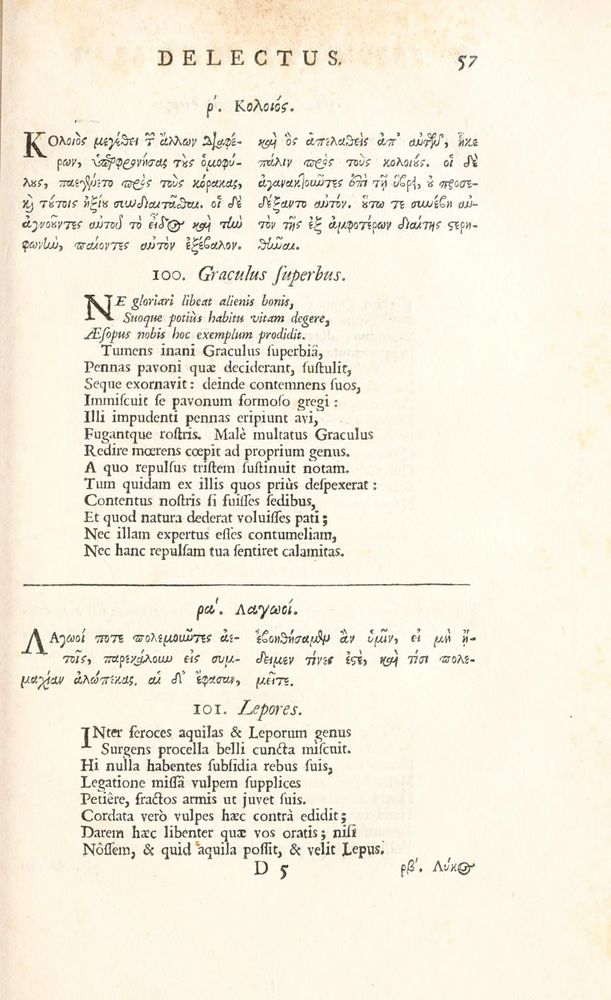 DELECTUS. 57
ρʹ. Κολοιός.
ΚΟλοιὸς μεγέθει τ ἄλλων διαφέ-
ρων, ὑπερφρονήσας τὰς ὁμοφύ-
λους, παρεγένετο πρὸς τοὺς κόρακας,
καὶ τούτοις ἠξίου συνδιαιτᾶσθαι. οἱ δὲ
ἀγνοοῦντες αὐτοῦ τὸ εἶδος καὶ τὴν
φωνὴν, παίοντες αὐτὸν ἐξέβαλον.
καὶ ὃς ἀπελαθεὶς ἀπ' αὐτῶν, ἧκε
πάλιν πρὸς τοὺς κολοιούς. οἱ δὲ
ἀγανακτοῦντες ἐπὶ τῇ ὕβρει, οὐ προσε-
δέξαντο αὐτόν. οὕτω τε συνέβη αὐ-
τὸν τῆς ἐξ ἀμφοτέρων διαίτης στερη-
θῆναι.
100. Graculus superbus.
NE gloriari libeat alienis bonis,
Suoque potiùs habitu vitam degere,
Æsopus nobis hoc exemplum prodidit.
Tumens inani Graculus superbiâ,
Pennas pavoni quæ deciderant, sustulit,
Seque exornavit: deinde contemnens suos,
Immiscuit se pavonum formoso gregi:
Illi impudenti pennas eripiunt avi,
Fugantque rostris. Malè multatus Graculus
Redire mœrens cœpit ad proprium genus.
A quo repulsus tristem sustinuit notam.
Tum quidam ex illis quos priùs despexerat:
Contentus nostris si fuisses sedibus,
Et quod natura dederat voluisses pati;
Nec illam expertus esses contumeliam,
Nec hanc repulsam tua sentiret calamitas.
ραʹ. Λαγωοί.
ΛΑγωοί ποτε πολεμοῦντες ἀε-
τοῖς, παρεκάλουν εἰς συμ-
μαχίαν ἀλώπεκας. αἱ δ' ἔφασαν,
ἐβοηθήσαμεν ἂν ὑμῖν, εἰ μὴ ᾔ-
δειμεν τίνες ἐστὲ, καὶ τίσι πολε-
μεῖτε.
101. Lepores.
INter feroces aquilas & Leporum genus
Surgens procella belli cuncta miscuit.
Hi nulla habentes subsidia rebus suis,
Legatione missâ vulpem supplices
Petiêre, fractos armis ut juvet suis.
Cordata verò vulpes hæc contrà edidit;
Darem hæc libenter quæ vos oratis; nisi
Nôssem, & quid aquila possit, & velit Lepus.
D 5 ρβʹ. Λύκος